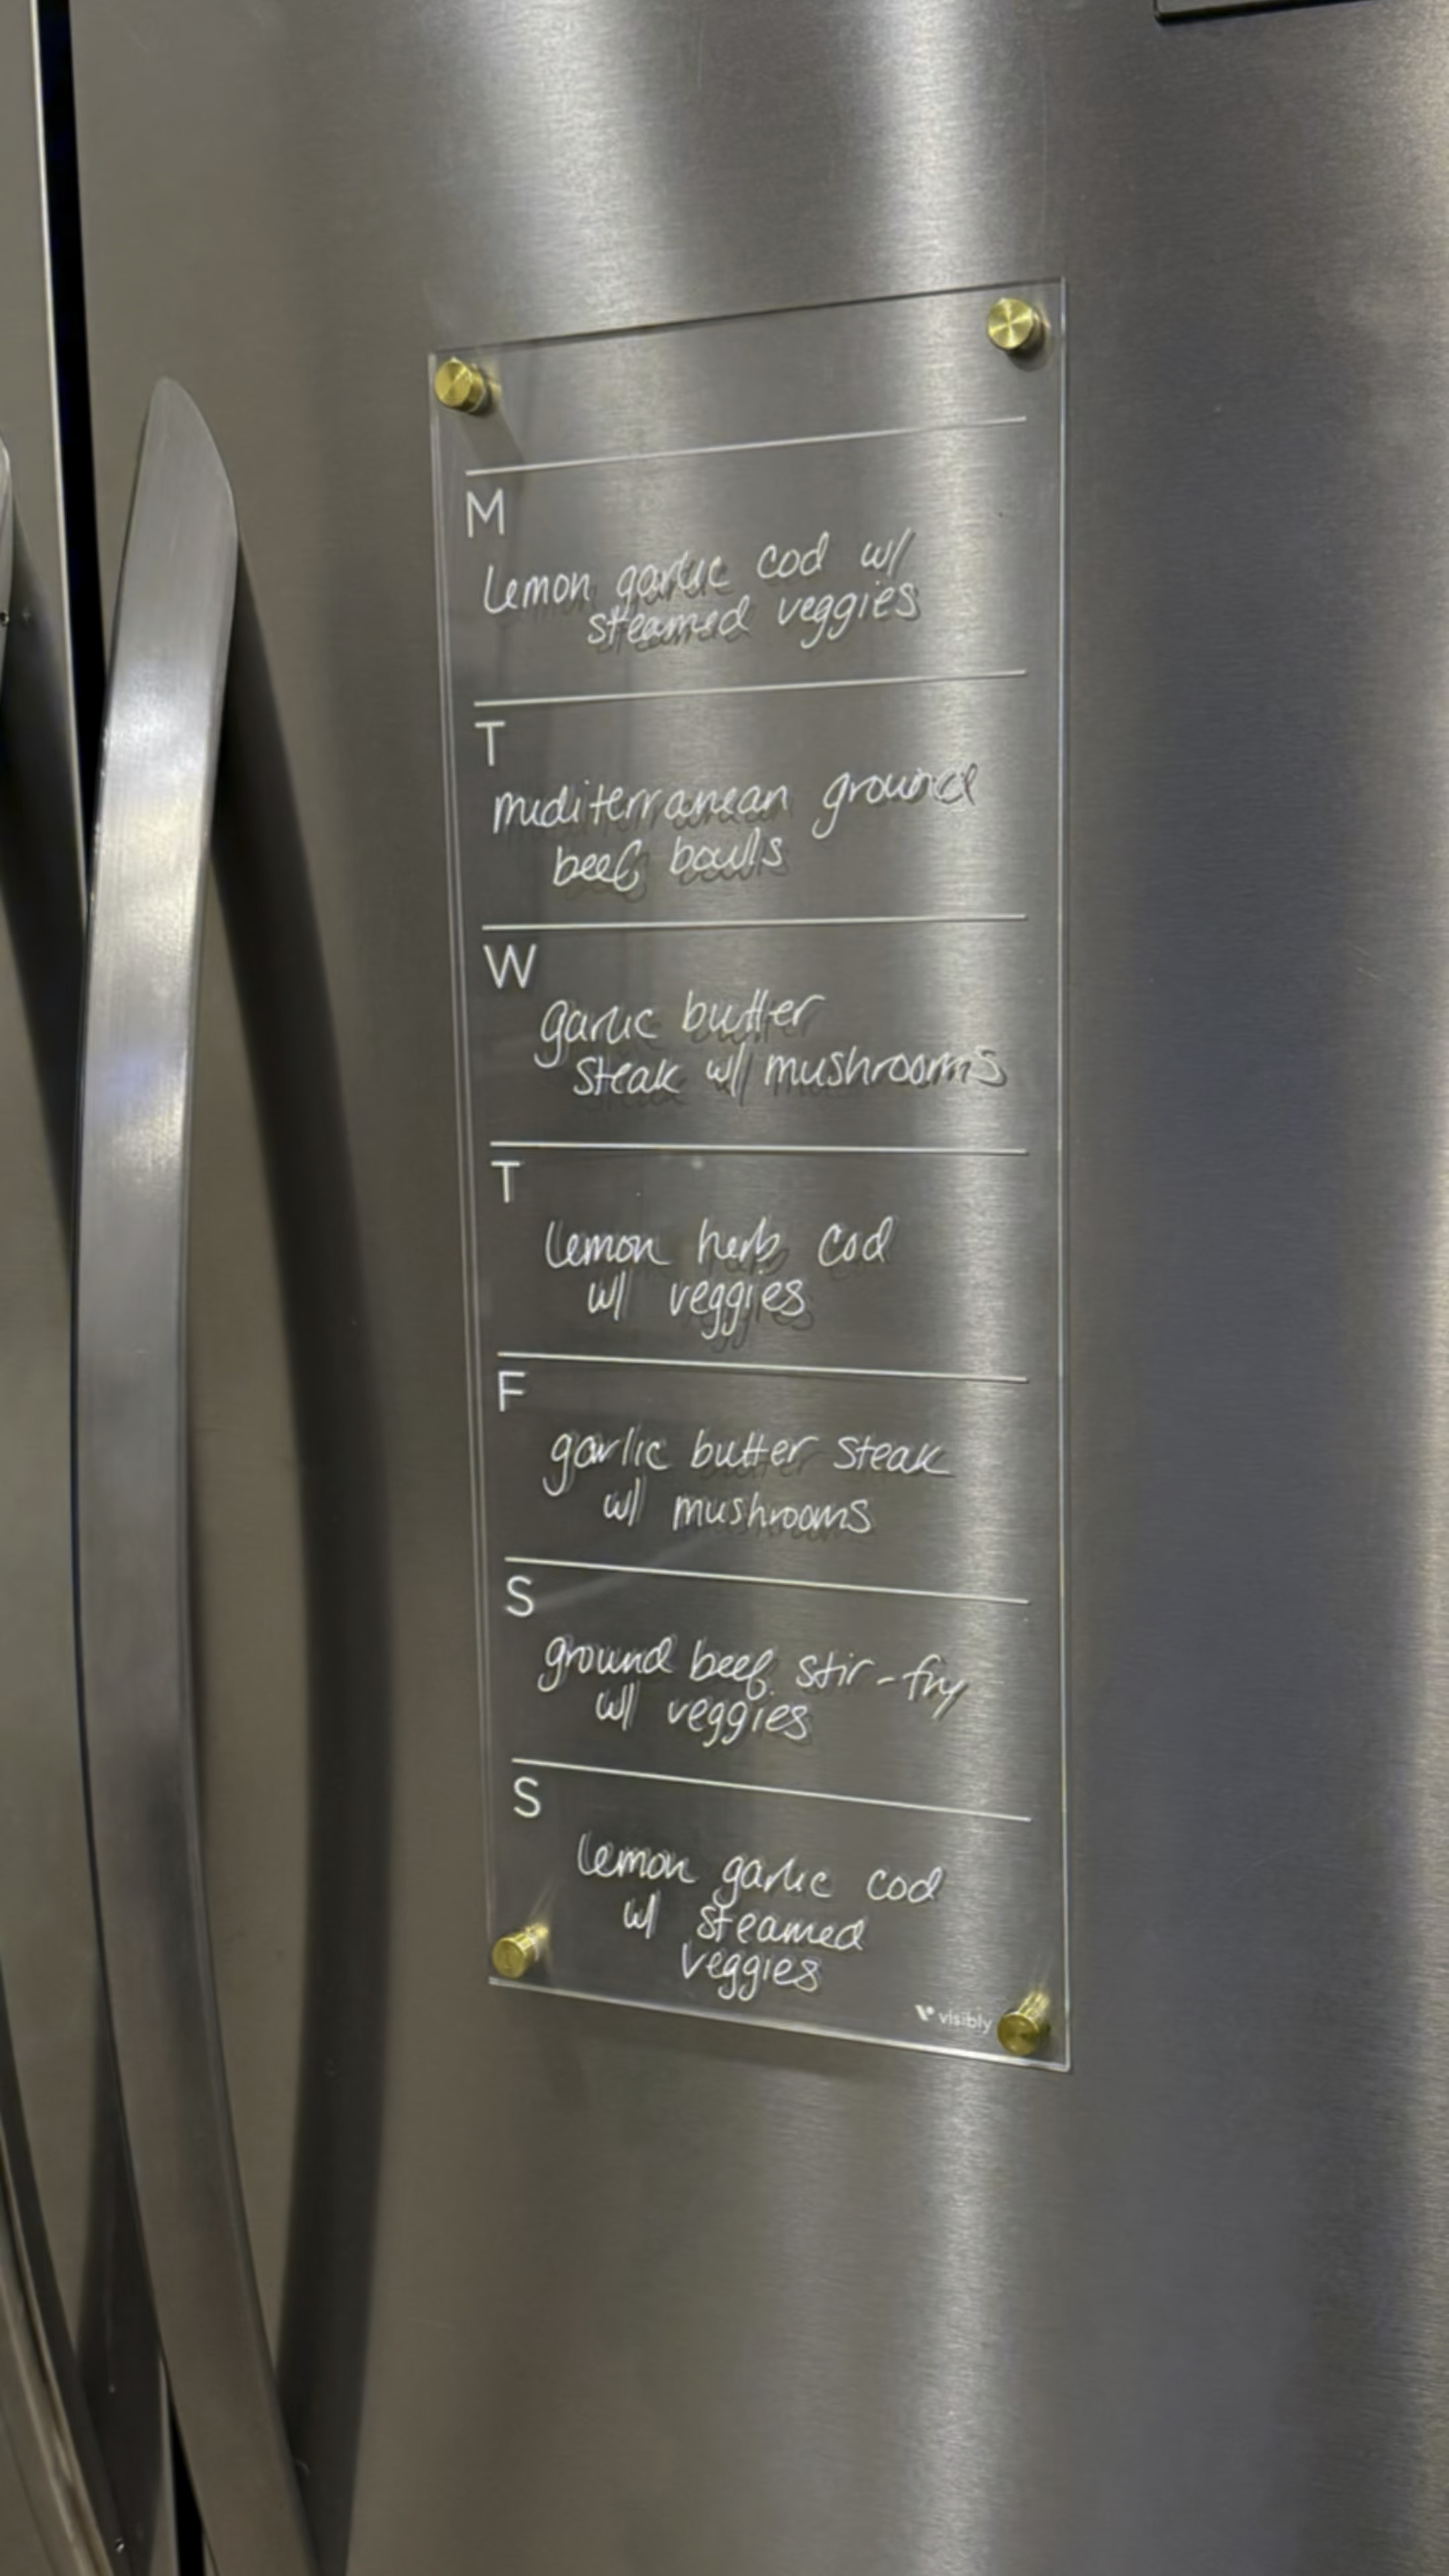 M
Lemon garlic cod w/
steamed veggies
T
mediterranean ground
beef bowls
W
garlic butter
steak w/ mushrooms
T
lemon herb cod
w/ veggies
F
garlic butter steak
w/ mushrooms
S
ground beef stir-fry
w/ veggies
S
lemon garlic cod
w/ steamed
veggies
visibly